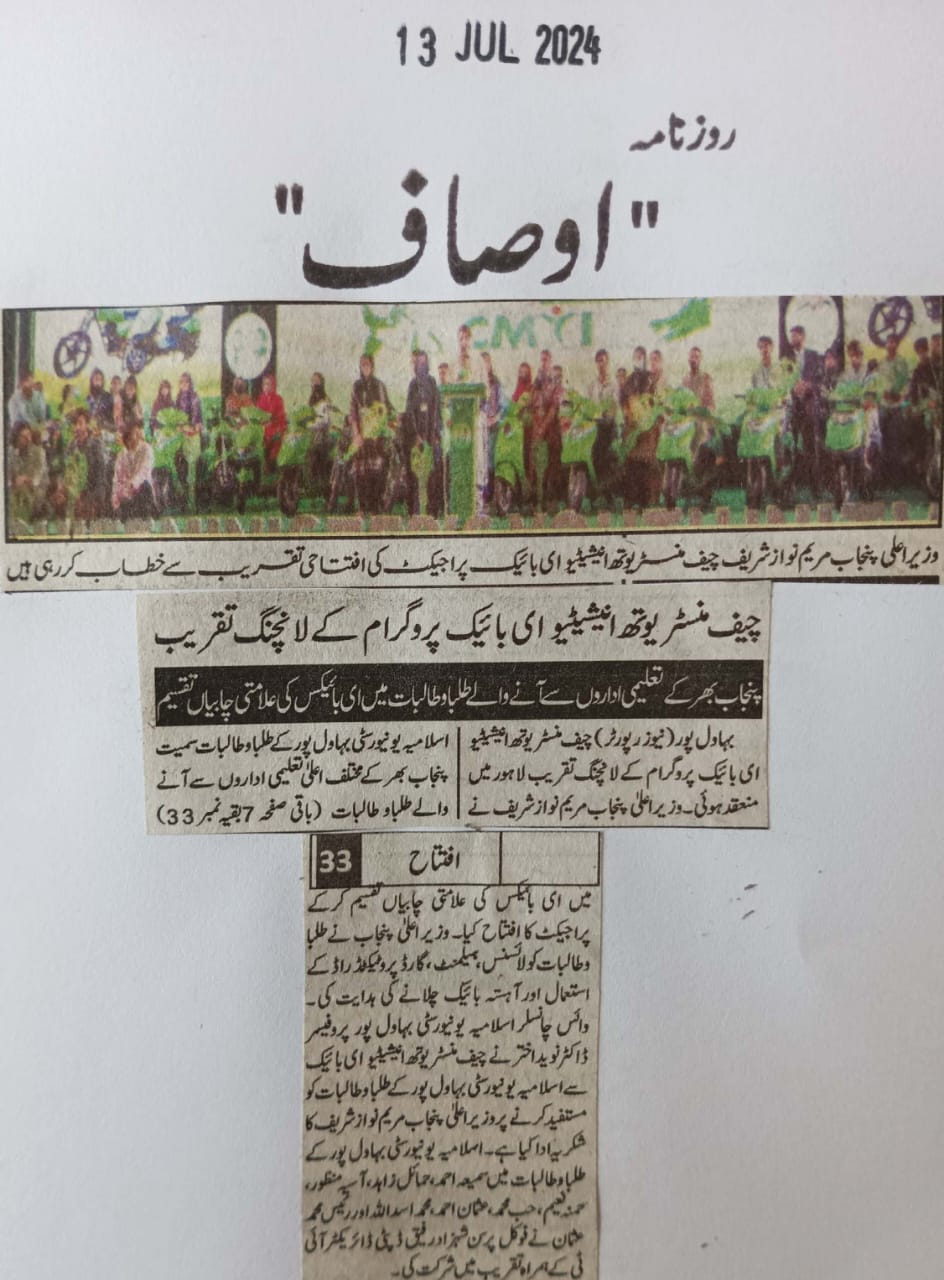 13 JUL 2024
روزنامہ
"اوصاف"
CMYI
وزیراعلی پنجاب مریم نواز شریف چیف منسٹر یوتھ انیشیٹیو ای بائیک پراجیکٹ کی افتتاحی تقریب سے خطاب کر رہی ہیں
چیف منسٹر یوتھ انیشیٹیو ای بائیک پروگرام کے لانچنگ تقریب
پنجاب بھر کے تعلیمی اداروں سے آنے والے طلبا و طالبات میں ای بائیکس کی علامتی چابیاں تقسیم
بہاول پور (نیوز رپورٹر) چیف منسٹر یوتھ انیشیٹیو
ای بائیک پروگرام کے لانچنگ تقریب لاہور میں
منعقد ہوئی۔ وزیراعلیٰ پنجاب مریم نواز شریف نے
اسلامیہ یونیورسٹی بہاول پور کے طلبا و طالبات سمیت
پنجاب بھر کے مختلف اعلیٰ تعلیمی اداروں سے آنے
والے طلبا و طالبات (باقی صفحہ 7 بقیہ نمبر 33)
33 افتتاح
میں ای بائیکس کی علامتی چابیاں تقسیم کر کے
پراجیکٹ کا افتتاح کیا۔ وزیراعلیٰ پنجاب نے طلبا
و طالبات کو لائسنس، ہیلمٹ، گارڈ پروٹیکٹڈ راڈ کے
استعمال اور آہستہ بائیک چلانے کی ہدایت کی۔
وائس چانسلر اسلامیہ یونیورسٹی بہاول پور پروفیسر
ڈاکٹر نوید اختر نے چیف منسٹر یوتھ انیشیٹیو ای بائیک
سے اسلامیہ یونیورسٹی بہاول پور کے طلبا و طالبات کو
مستفید کرنے پر وزیراعلیٰ پنجاب مریم نواز شریف کا
شکریہ ادا کیا ہے۔ اسلامیہ یونیورسٹی بہاول پور کے
طلبا و طالبات میں سمیعہ احمد، حمائل زاہد، آسیہ منظور،
حمنہ نعیم، حب محمد، عثمان احمد، محمد اسد اللہ اور رئیس محمد
عثمان نے فوکل پرسن شہزاد رفیق ڈپٹی ڈائریکٹر آئی
ٹی کے ہمراہ تقریب میں شرکت کی۔